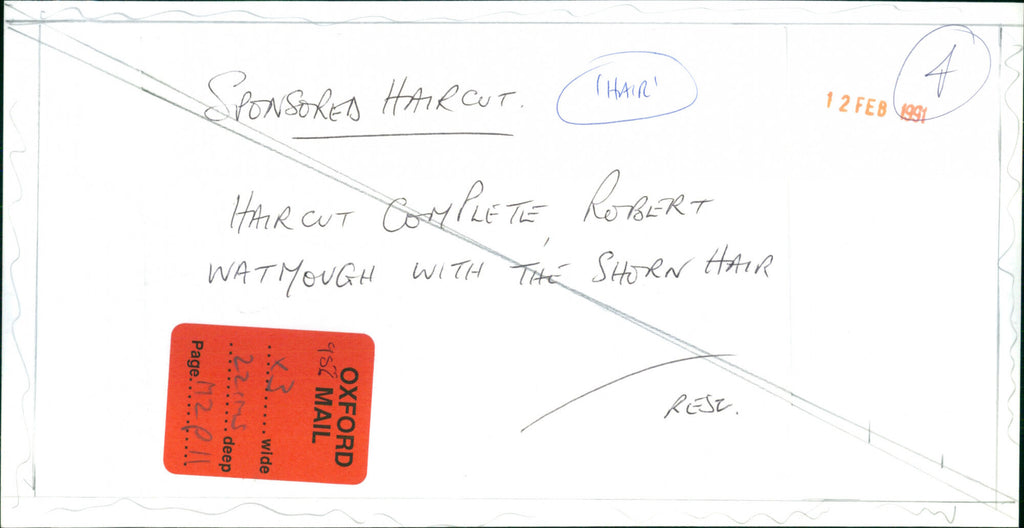 SPONSORED HAIRCUT.
'HAIR'
4
12 FEB 1991
HAIRCUT COMPLETE, ROBERT
WATMOUGH WITH THE SHORN HAIR
OXFORD
MAIL
982
X3 wide
deep
Page M2 P 11